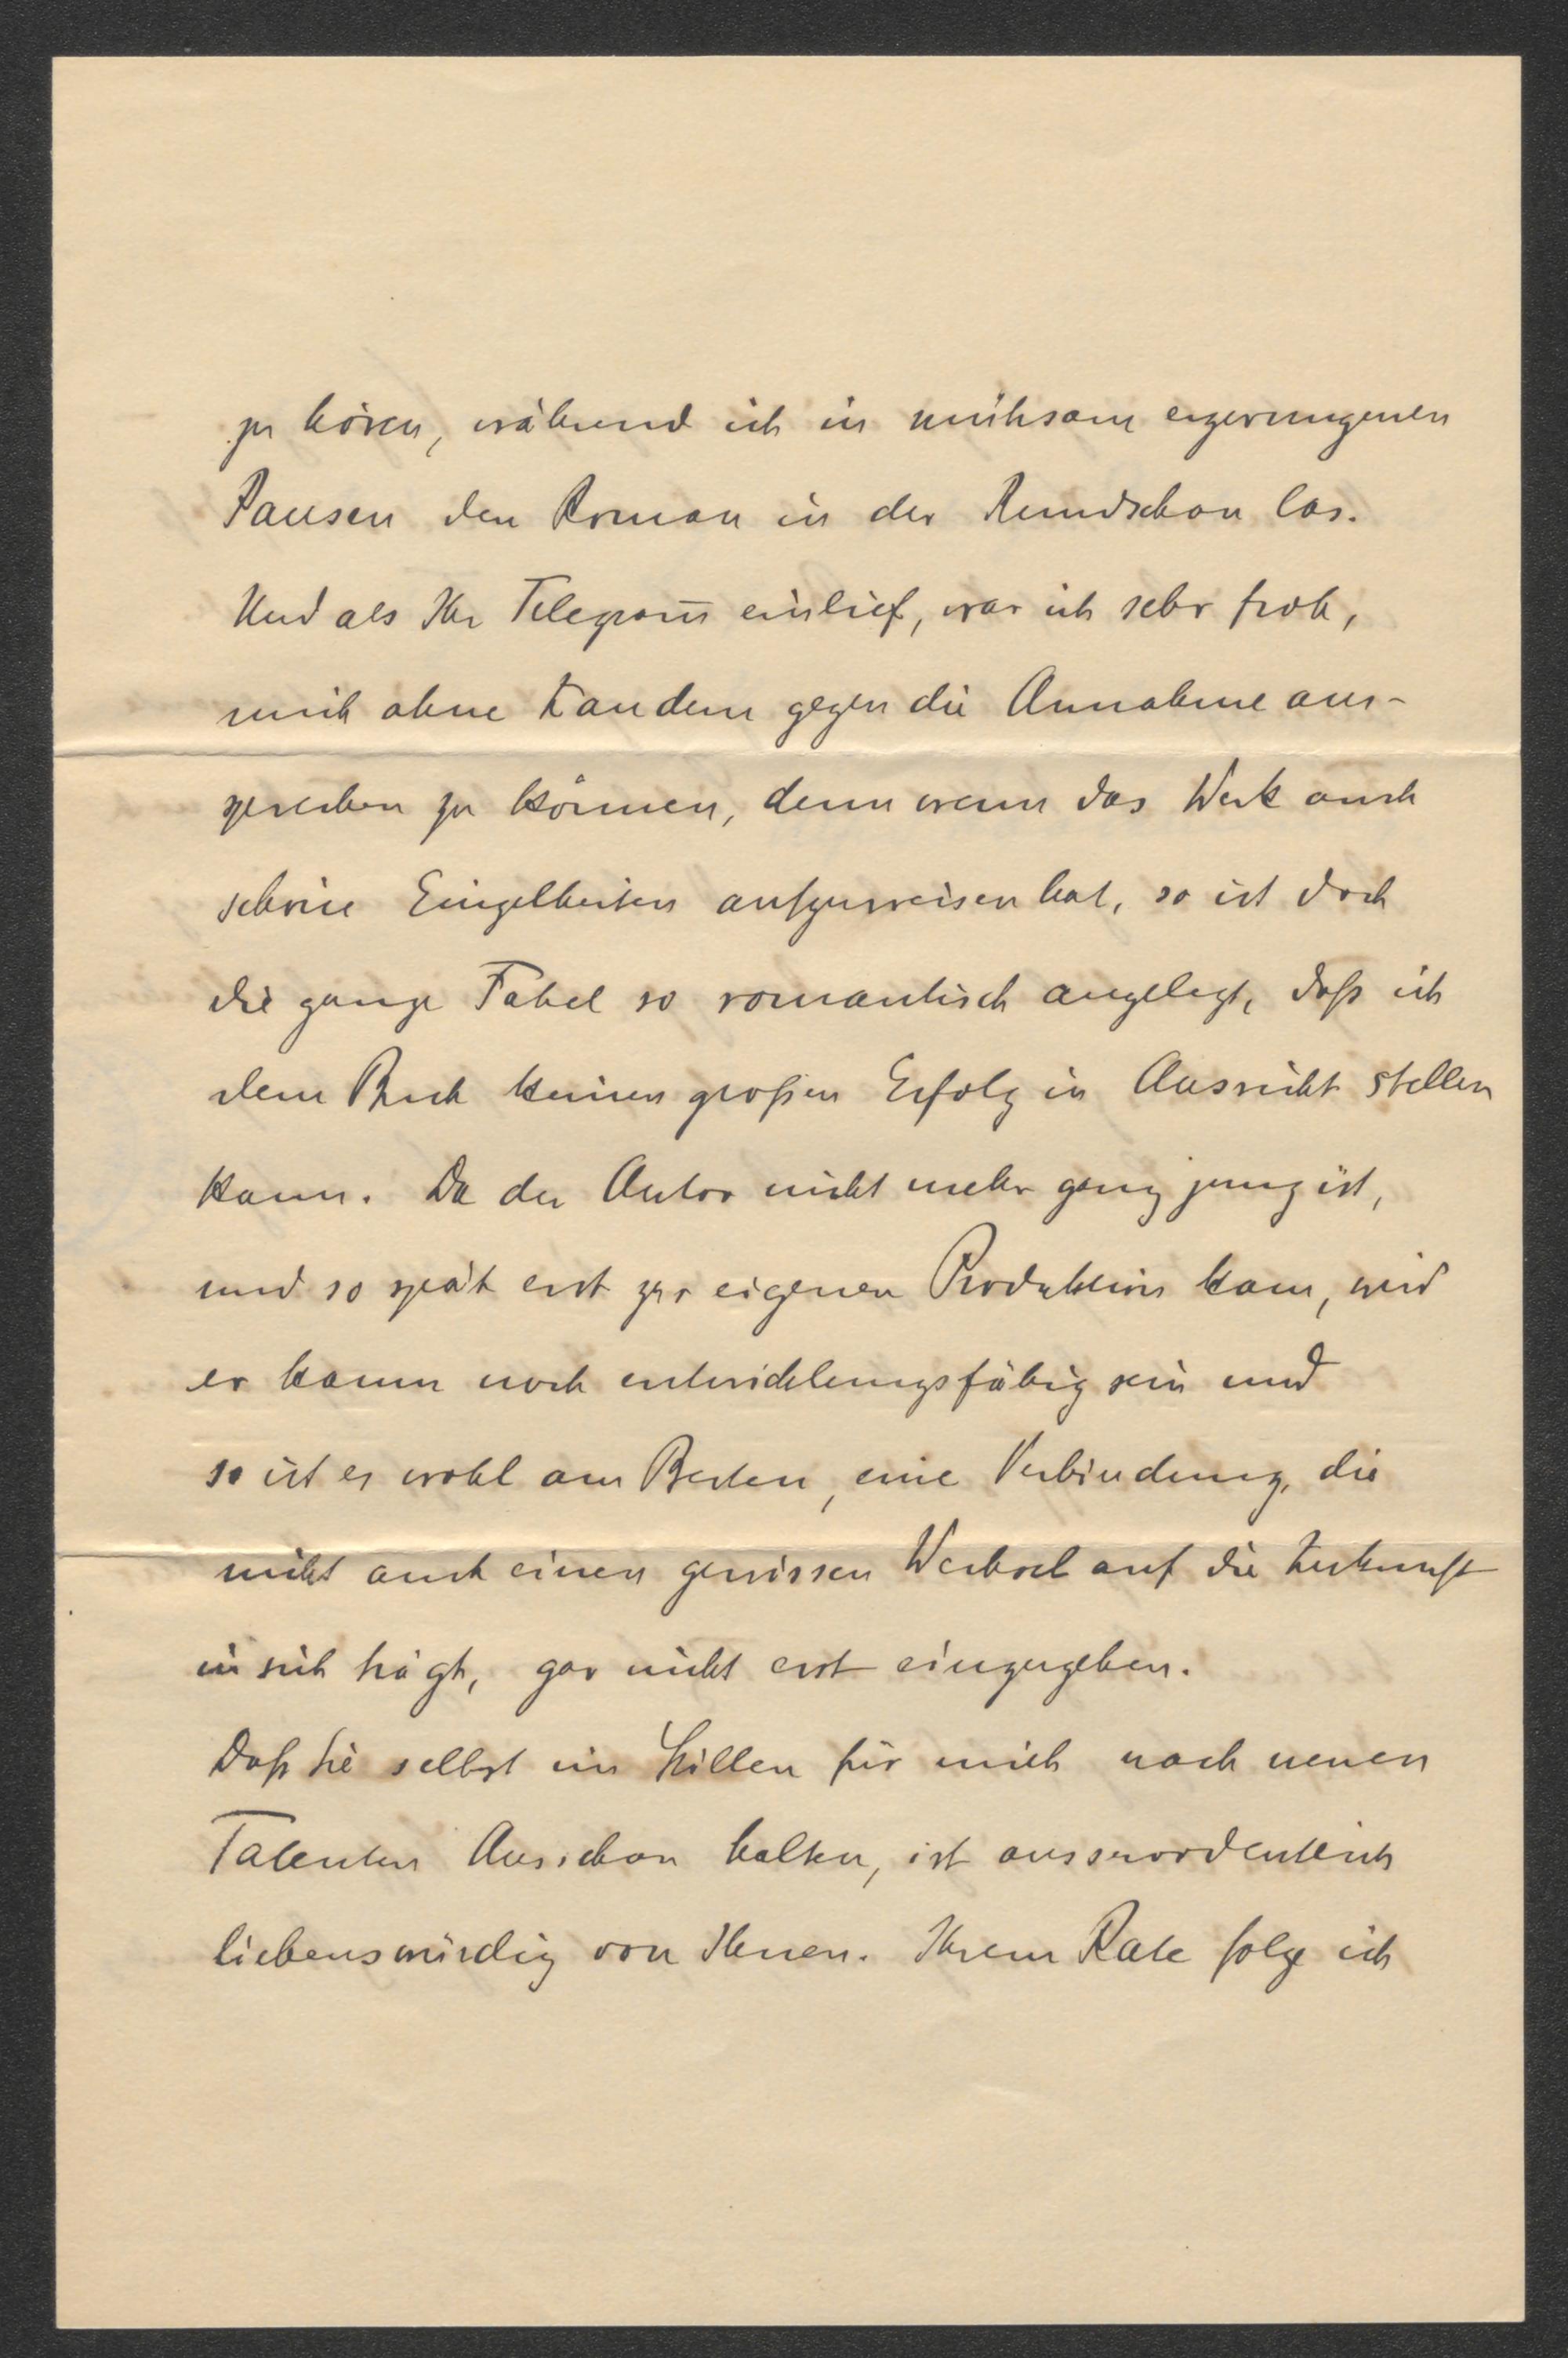 zu hören, während ich in mühsam erzwungenen
Pausen den Roman in der Rundschau las.
Und als Ihr Telegram̄ einlief, war ich sehr froh,
mich ohne Zaudern gegen die Annahme aus-
sprechen zu können, denn wenn das Werk auch
schöne Einzelheiten aufzuweisen hat, so ist doch
die ganze Fabel so romantisch angelegt, daß ich
dem Buch keinen großen Erfolg in Aussicht stellen
kann. Da der Autor nicht mehr ganz jung ist,
und so spät erst zur eigenen Produktion kam, wird
er kaum noch entwicklungsfähig sein und
so ist es wohl am Besten, eine Verbindung, die
nicht auch einen gewissen Wechsel auf die Zukunft
in sich trägt, gar nicht erst einzugehen.
Daß Sie selbst im Stillen für mich nach neuen
Talenten Ausschau halten, ist ausserordentlich
liebenswürdig von Ihnen. Ihrem Rate folge ich